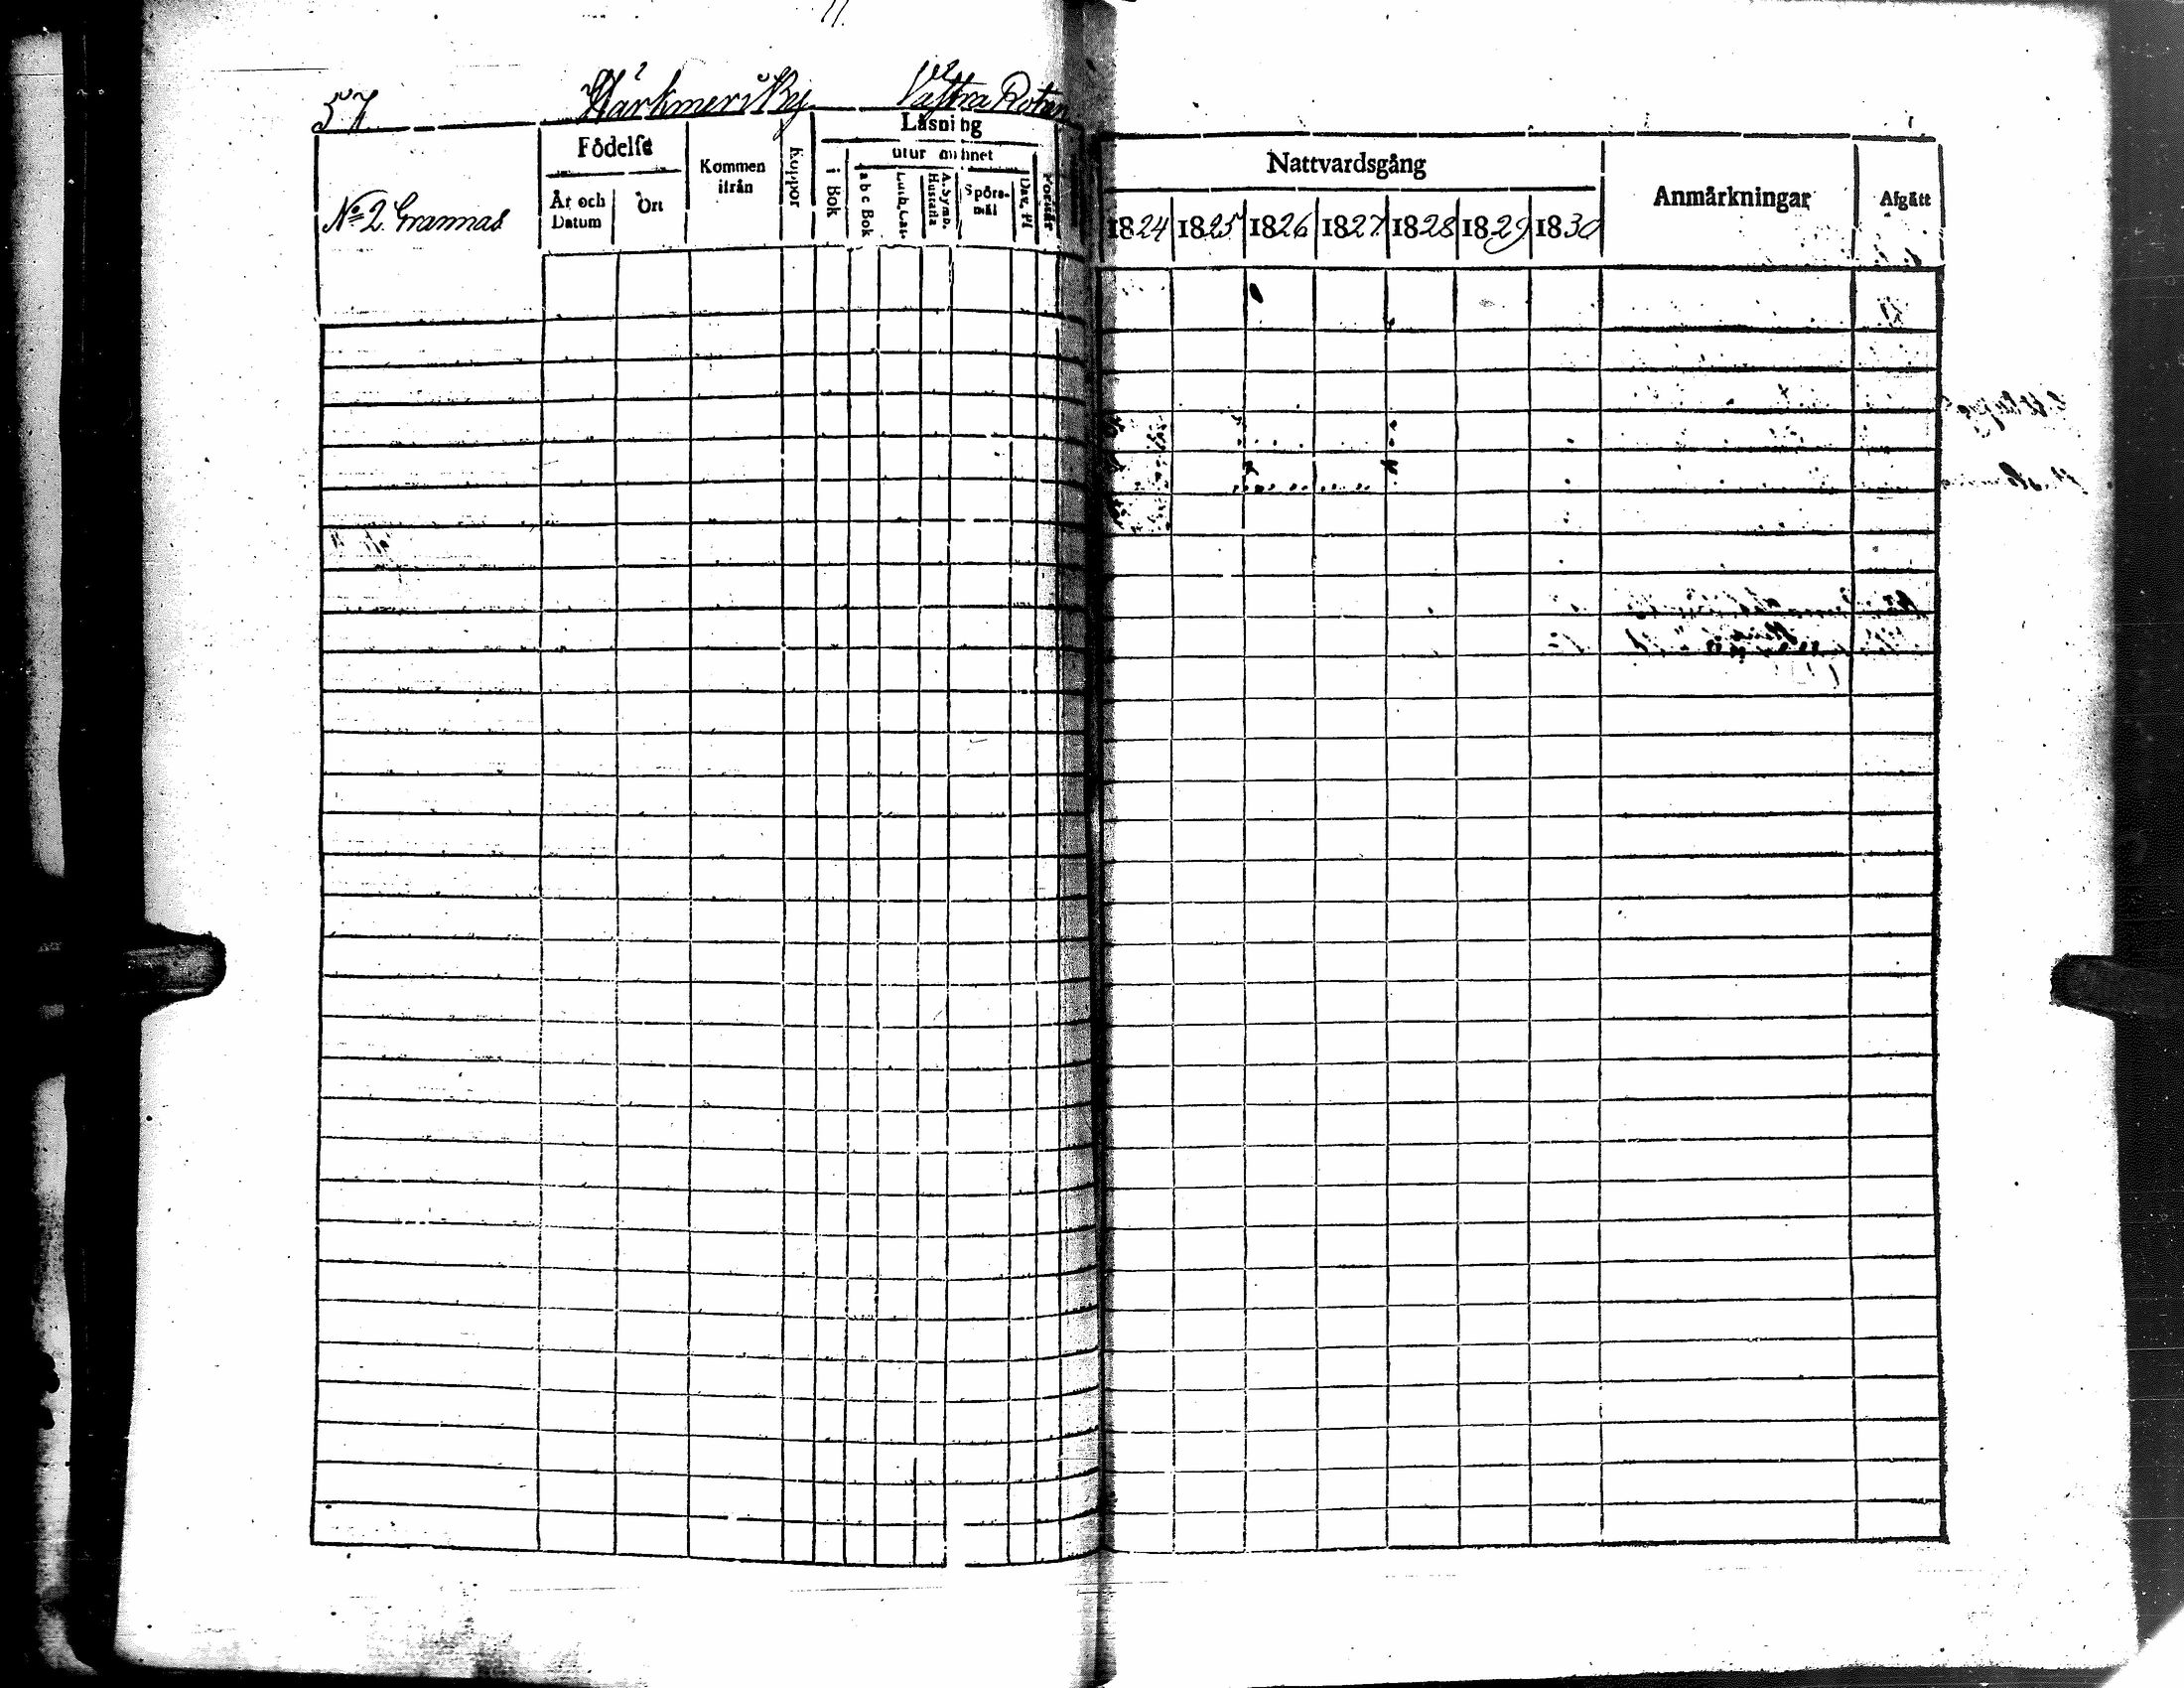 57. Härkmeri By Västra Rotan
No 2. Grannas
Födelse
År och Datum
Ort
Kommen ifrån
Koppor
Läsning
i Bok
utur minnet
a b c Bok
Luth. Cat.
A. Symb. Hustafla
Spörsmål
Dav. Ps
Förstår
Nattvardsgång
1824 1825 1826 1827 1828 1829 1830
Anmärkningar
Afgått